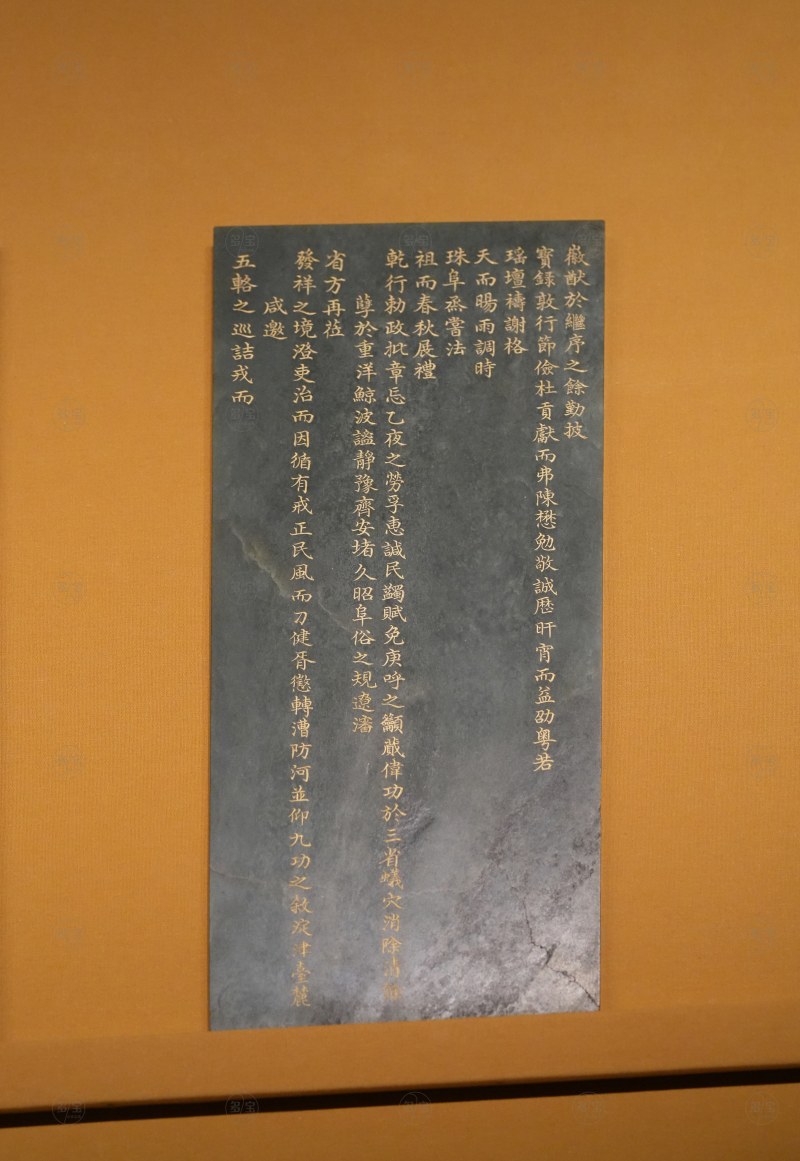 徽猷於繼序之餘勤披
寶録敦行節儉杜貢獻而弗陳懋勉敬誠歷旰宵而益劭粵若
瑶壇禱謝格
天而暘雨調時
珠阜烝嘗法
祖而春秋展禮
乾行勅政批章忘乙夜之勞孚惠諴民蠲賦免庚呼之籲蕆偉功於三省蟻穴消除清
孽於重洋鯨波謐靜豫齊安堵久昭阜俗之規遼瀋
省方再莅
發祥之境澄吏治而因循有戒正民風而刀健胥懲轉漕防河並仰九功之敘淀津臺麓
咸邀
五輅之巡詰戎而